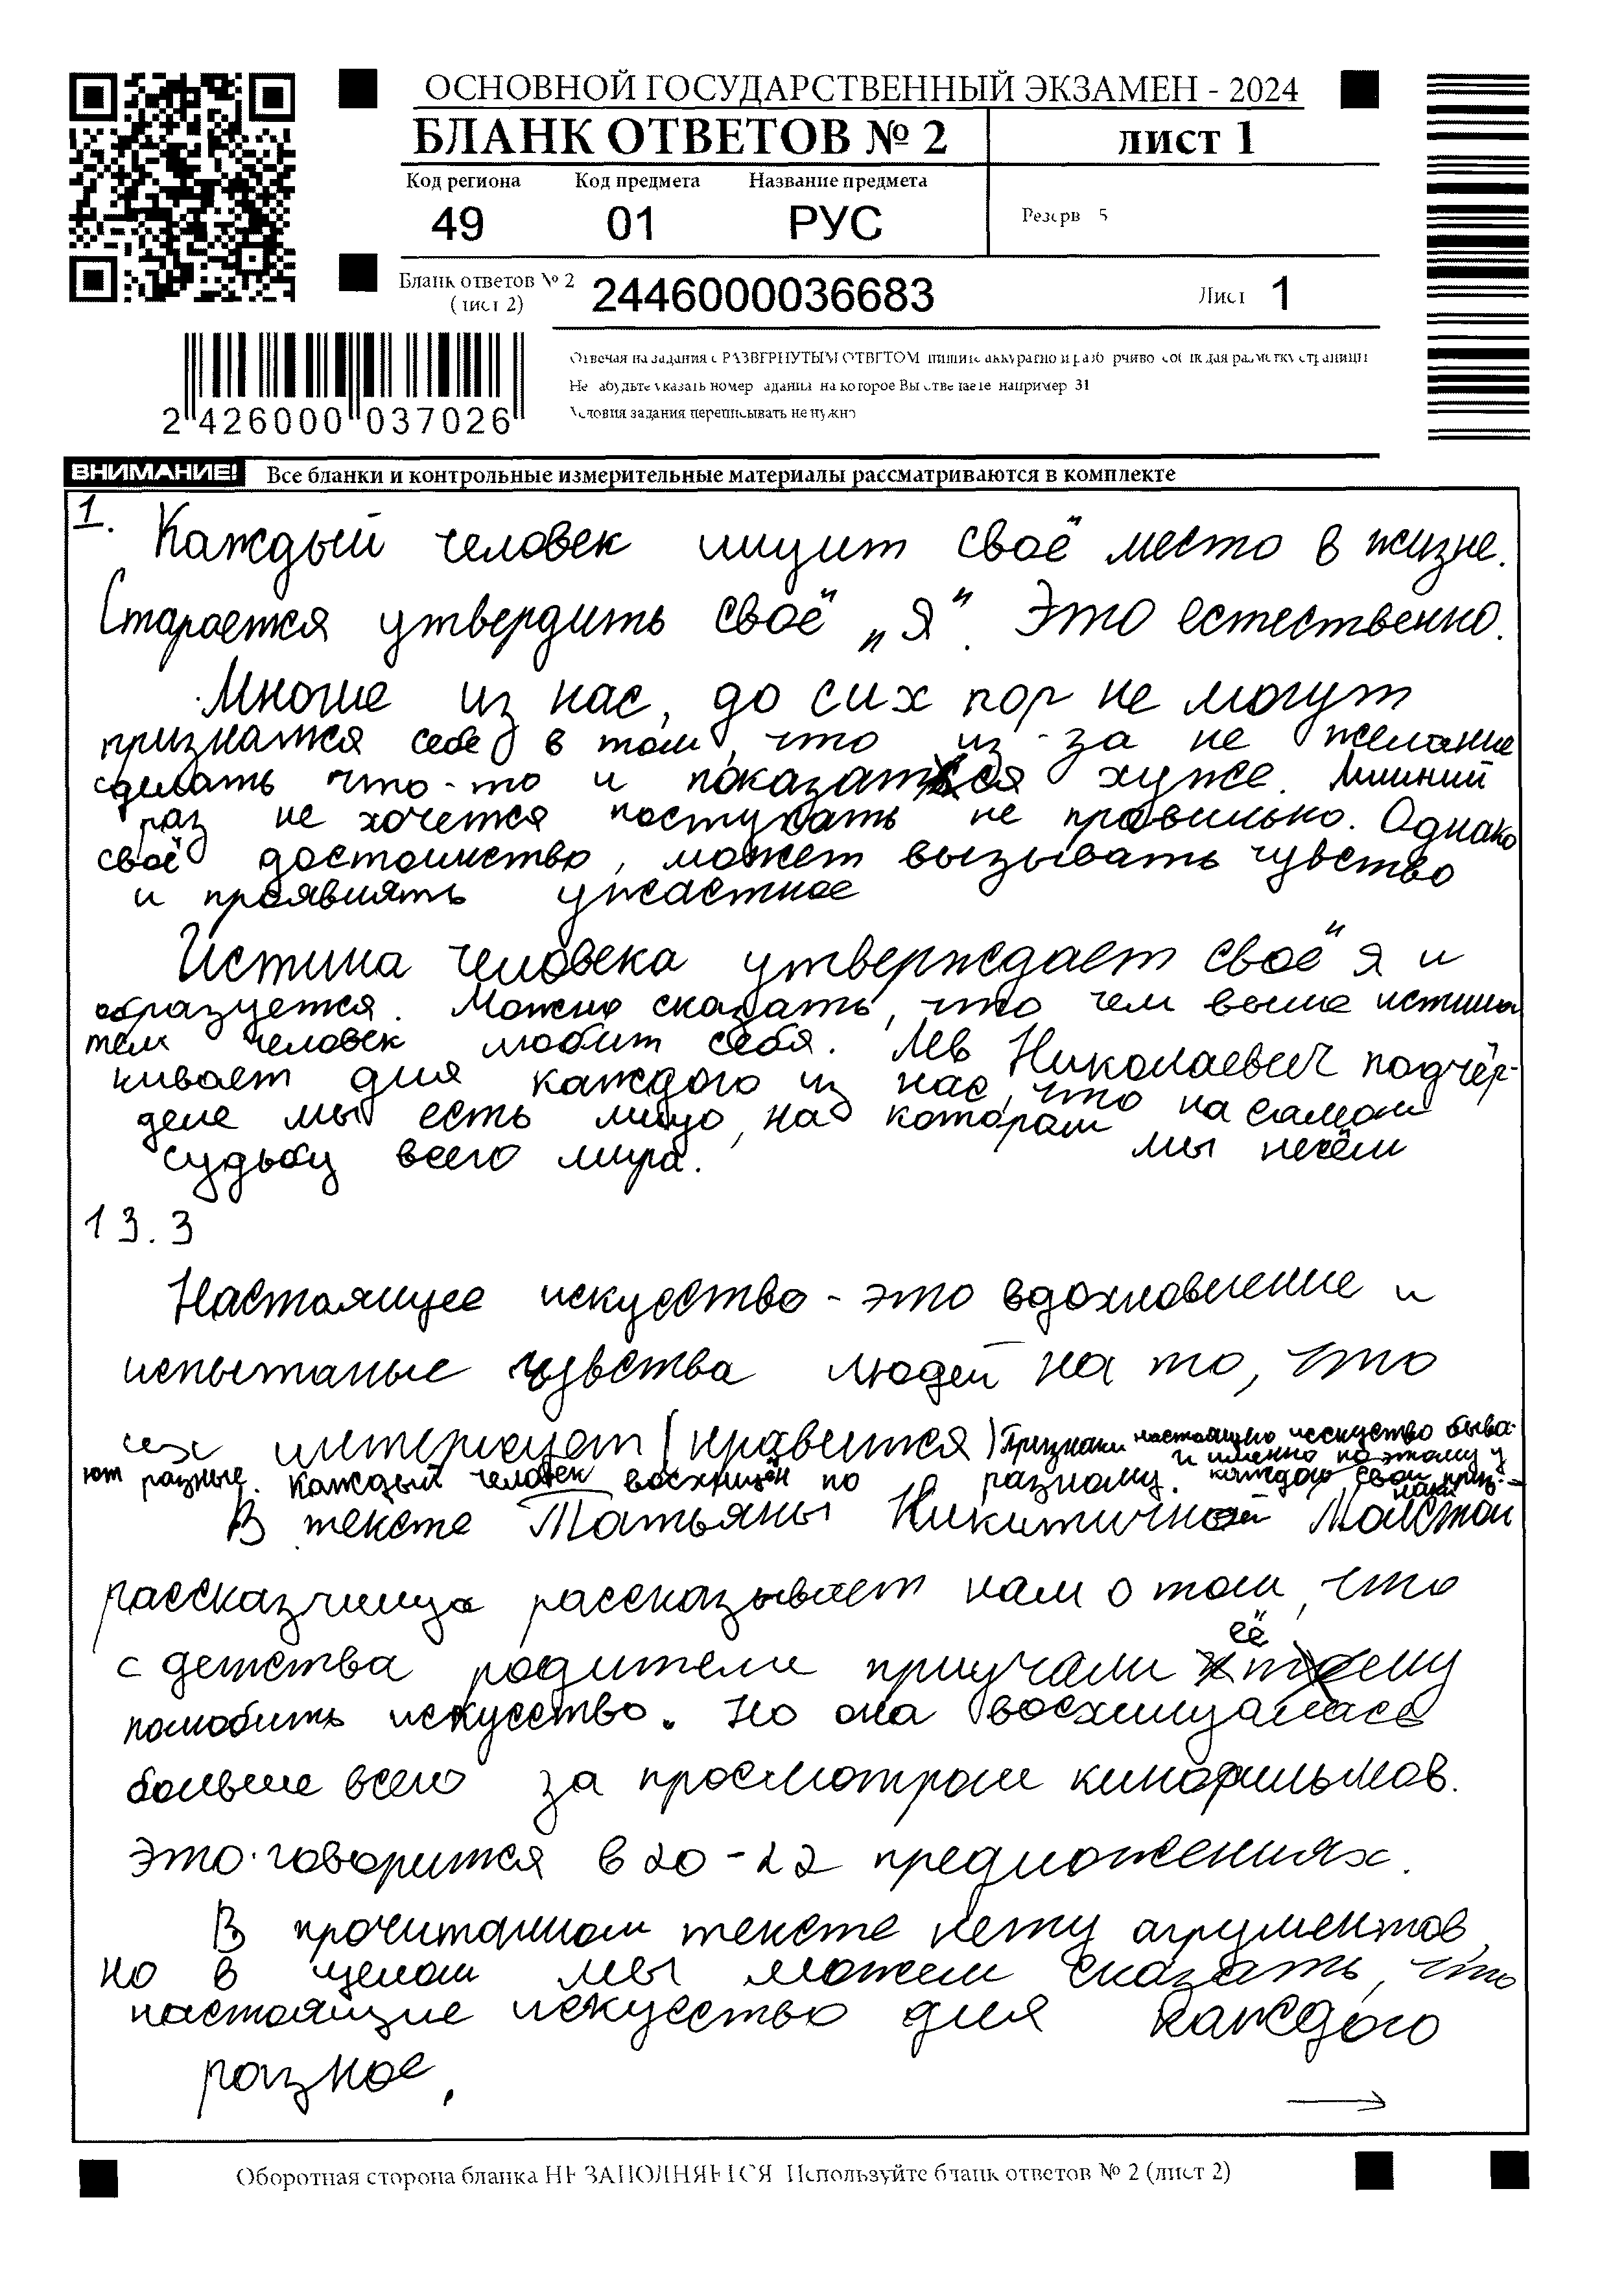 ОСНОВНОЙ ГОСУДАРСТВЕННЫЙ ЭКЗАМЕН - 2024
БЛАНК ОТВЕТОВ № 2 лист 1
Код региона Код предмета Название предмета
49 01 РУС Резерв 5
Бланк ответов № 2 (лист 2) 2446000036683 Лист 1
Отвечая на задания с РАЗВЕРНУТЫМ ОТВЕТОМ пишите аккуратно и разборчиво соблюдая разметку страницы
Не забудьте указать номер задания на которое Вы отвечаете например 31
Условия задания переписывать не нужно
2 426000 037026
ВНИМАНИЕ! Все бланки и контрольные измерительные материалы рассматриваются в комплекте
1. Каждый человек ищит своё место в жизне.
Старается утвердить своё „Я“. Это естественно.
Многие из нас, до сих пор не могут
признатся себе в том, что из-за не желание
сделать что-то и показатся хуже. Лишний
раз не хочется поступать не правильно. Однако
своё достоинство, может вызывать чувство
и проявлять ужастное
Истина человека утверждает своё "я и
образуется. Можно сказать, что чем выше истина
тем человек любит себя. Лев Николаевич подчёр-
кивает для каждого из нас, что на самом
деле мы есть лицо, на котором мы несём
судьбу всего мира.
13.3
Настоящее искусство - это вдохновение и
испытаные чувства людей на то, что
их интерисует (нравится) Признаки настоящего исскуство быва-
ют разные. Каждый человек восхищён по разному. и именно по этому у каждого свои приз-
наки
В тексте Татьяны Никитичной Толстой
рассказчица рассказывает нам о том, что
с детства родители приучали её
полюбить искусство. Но она восхищалась
больше всего за просмотром кинофильмов.
Это говорится в 20-22 предложениях.
В прочитанном тексте нету агрументов,
но в целом мы можем сказать, что
настоящие искусство для каждого
разное.
→
Оборотная сторона бланка НЕ ЗАПОЛНЯЕТСЯ Используйте бланк ответов № 2 (лист 2)